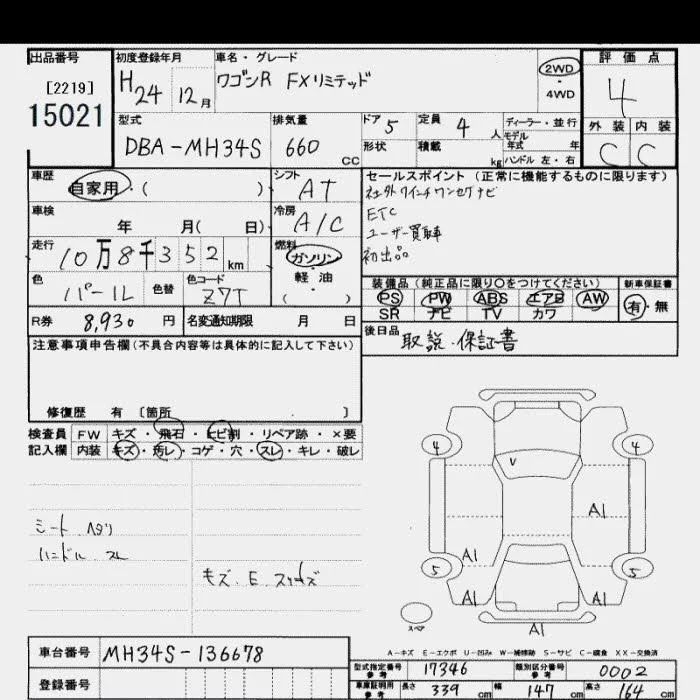 出品番号
[2219]
15021
初度登録年月
H24 12月
車名・グレード
ワゴンR FXリミテッド
2WD
・
4WD
評価点
4
外装 内装
C C
型式
DBA-MH34S
排気量
660 CC
ドア 5
形状
定員 4 人
積載 kg
ディーラー・並行
モデル
年式 年
ハンドル 左・右
車歴
自家用・( )
シフト
AT
車検
年 月( 日)
冷房
A/C
走行
10万8千352km
燃料
ガソリン
軽油
( )
色
パール
色替
色コード
Z7T
R券 8,930 円
名変通知期限 月 日
セールスポイント (正常に機能するものに限ります)
社外ワインチワンセグナビ
ETC
ユーザー買取車
初出品
装備品(純正品に限り〇をつけてください)
新車保証書
PS PW ABS エアB AW
SR ナビ TV カワ
有・無
後日品
取説・保証書
注意事項申告欄(不具合内容等は具体的に記入して下さい)
修復歴 有 [箇所 ]
検査員 FW キズ・飛石・ヒビ割・リペア跡・×要
記入欄 内装 キズ・汚レ・コゲ・穴・スレ・キレ・破レ
シート ヘタリ
ハンドル スレ
キズ. E. スリキズ
4 4
V
A1
A1
5 5
A1 A1
スペア
A1
A-キズ E-エクボ U-凹み W-補修跡 S-サビ C-腐食 XX-交換済
車台番号 MH34S-136678
登録番号
型式指定番号 17346
参考
類別区分番号 0002
参考
車庫証明用 長さ 339 cm 幅 147 cm 高さ 164 cm
参考